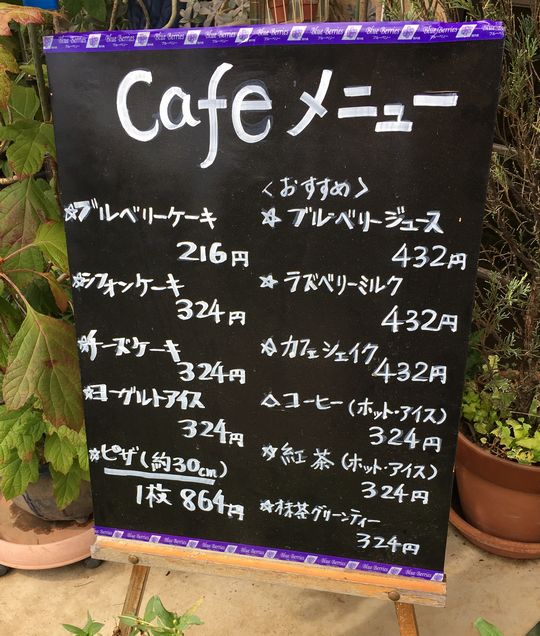 Blue Berries Blue Berries Blue Berries Blue Berries Blue Berries Blue Berries
Cafe メニュー
☆ブルベリーケーキ
216円
☆シフォンケーキ
324円
☆チーズケーキ
324円
☆ヨーグルトアイス
324円
☆ピザ(約30cm)
1枚 864円
<おすすめ>
☆ ブルーベリージュース
432円
☆ ラズベリーミルク
432円
☆ カフェシェイク
432円
☆ コーヒー(ホット・アイス)
324円
☆ 紅茶(ホット・アイス)
324円
☆抹茶グリーンティー
324円
Blue Berries Blue Berries Blue Berries Blue Berries Blue Berries